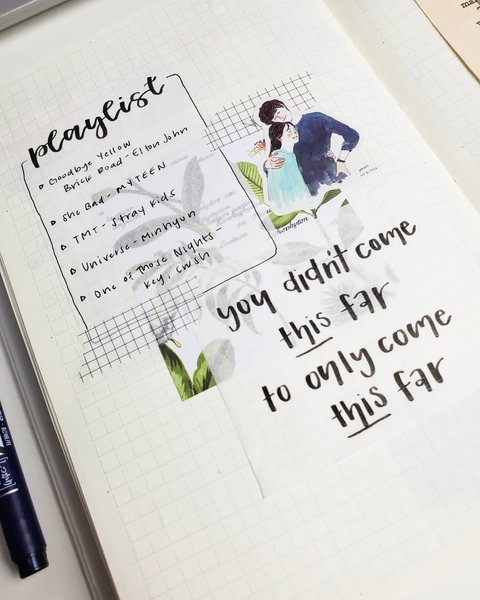 playlist
Goodbye Yellow
Brick Road - Elton John
She Bad - MYTEEN
TMT - Stray Kids
Universe - Minhyun
One of Those Nights -
Key, Crush
you didn't come
this far
to only come
this far